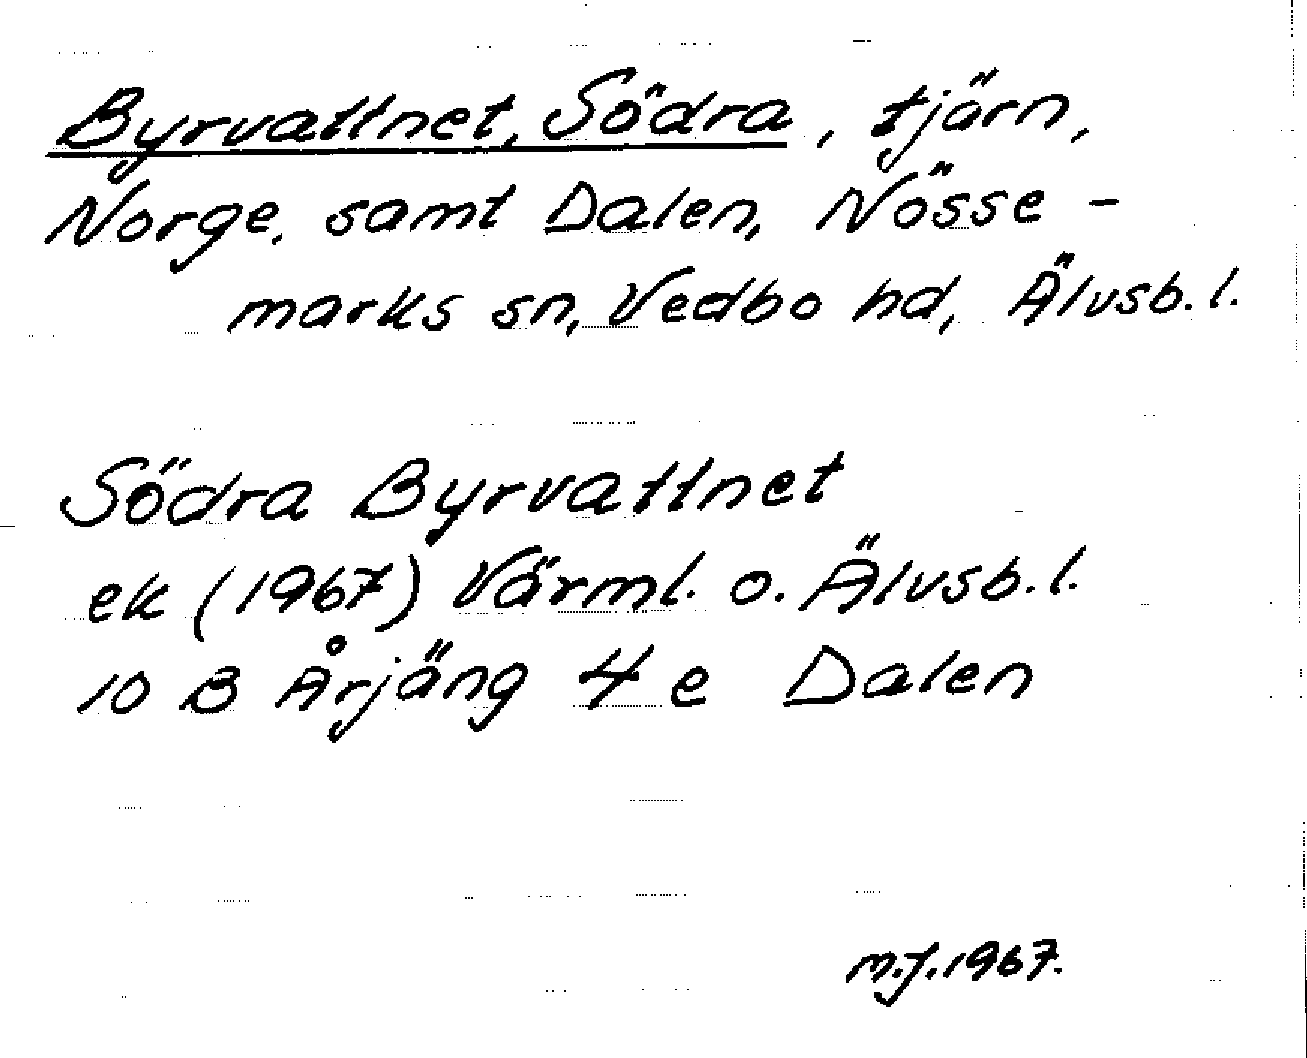 Byrvattnet, Södra, tjärn,
Norge, samt Dalen, Nösse-
marks sn, Vedbo hd, Älvsb. l.
Södra Byrvattnet
ek (1967) Värml. o. Älvsb. l.
10 B Årjäng 4 e Dalen
m.j. 1967.